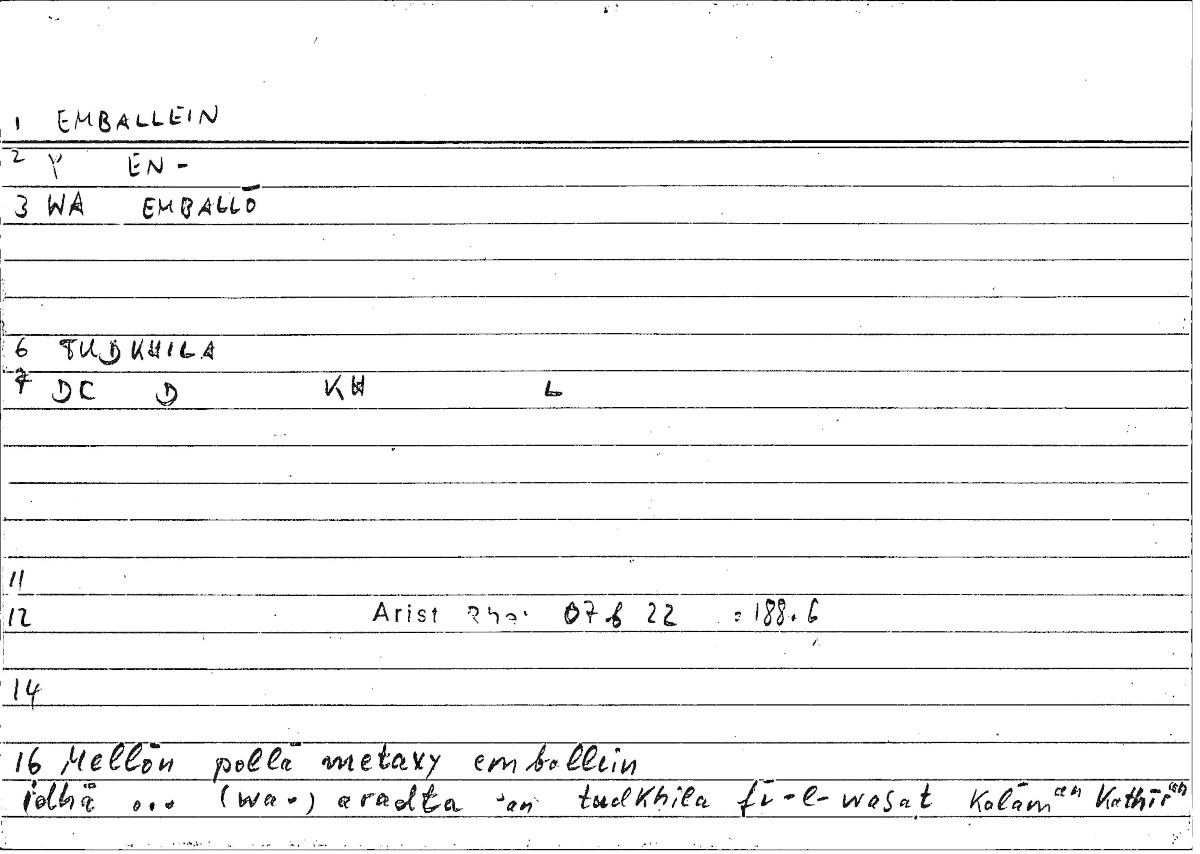 1 EMBALLEIN
2 EN-
3 WA EMBALLŌ
6 TUDKHILA
7 DC D KH L
11
12 Arist Rhe. 07b 22 = 188.6
14
16 Mellōn polla metaxy emballein
idhā ... (wa-) aradta 'an tudkhila fī-l-wasaṭ kalāmᵃⁿ kathīrᵃⁿ